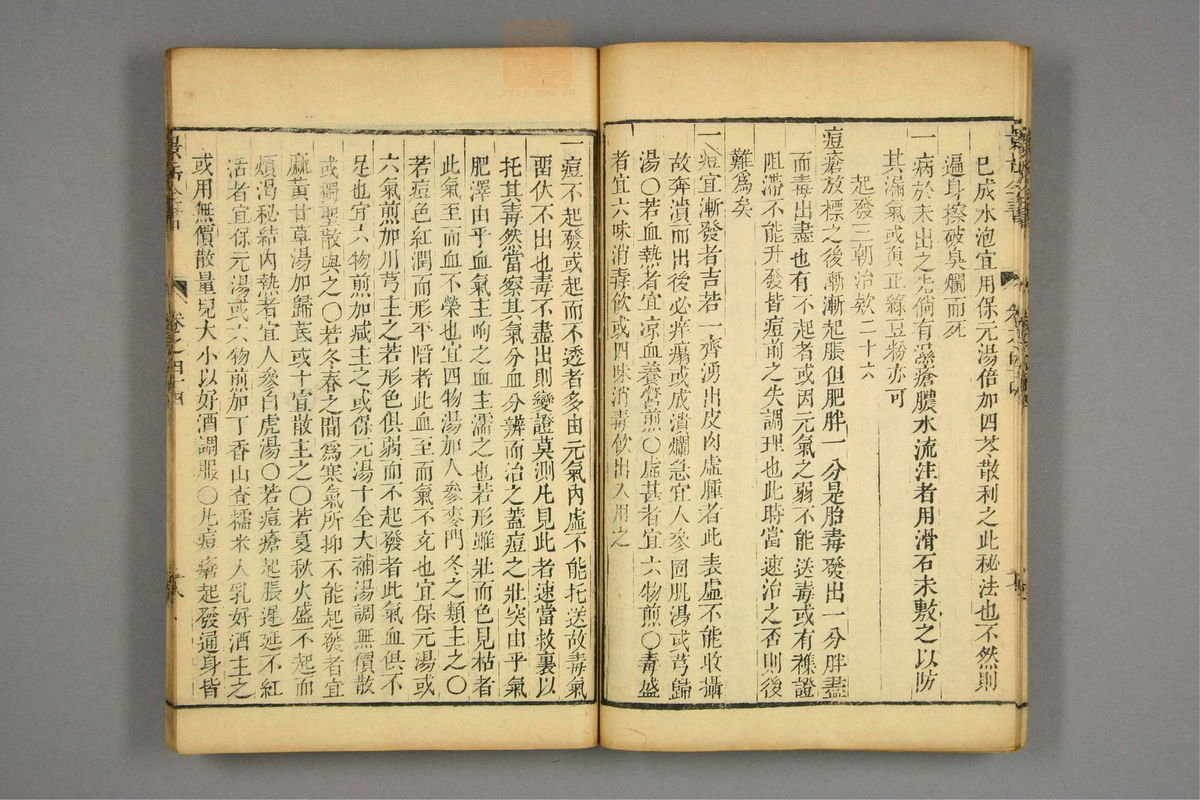 已成水泡宜用保元湯倍加四苓散利之此秘法也不然則
遍身擦破臭爛而死
一病於未出之先倘有瘡膿水流注者用滑石末敷之以防
其漏氣或真正綠豆粉亦可
起發三朝治欵二十六
痘瘡放標之後漸漸起脹但肥胖一分是胎毒發出一分胖盡
而毒出盡也有不起者或因元氣之弱不能送毒或有雜證
阻滯不能升發皆痘前之失調理也此時當速治之否則後
難爲矣
一痘宜漸發者吉若一齊湧出皮肉虛腫者此表虛不能收攝
故奔潰而出後必痒塌或成潰爛急宜人參固肌湯或芎歸
湯〇若血熱者宜凉血養營煎〇虛甚者宜六物煎〇毒盛
者宜六味消毒飲或四味消毒飲出入用之
一痘不起發或起而不透者多由元氣內虛不能托送故毒氣
畱伏不出也毒不盡出則變證莫測凡見此者速當救裏以
托其毒然當察其氣分血分辨而治之蓋痘之壯突由乎氣
肥澤由乎血氣主呴之血主濡之也若形雖壯而色見枯者
此氣至而血不榮也宜四物湯加人參麥門冬之類主之〇
若痘色紅潤而形平陷者此血至而氣不充也宜保元湯或
六氣煎加川芎主之若形色俱弱而不起發者此氣血俱不
足也宜六物煎加減主之或保元湯十全大補湯調無價散
或獨聖散與之〇若冬春之間爲寒氣所抑不能起發者宜
麻黃甘草湯加歸芪或十宣散主之〇若夏秋火盛不起而
煩渴秘結內熱者宜人參白虎湯〇若痘瘡起脹遲延不紅
活者宜保元湯或六物煎加丁香山查糯米人乳好酒主之
或用無價散量兒大小以好酒調服〇凡痘瘡起發通身皆
卷之四十四